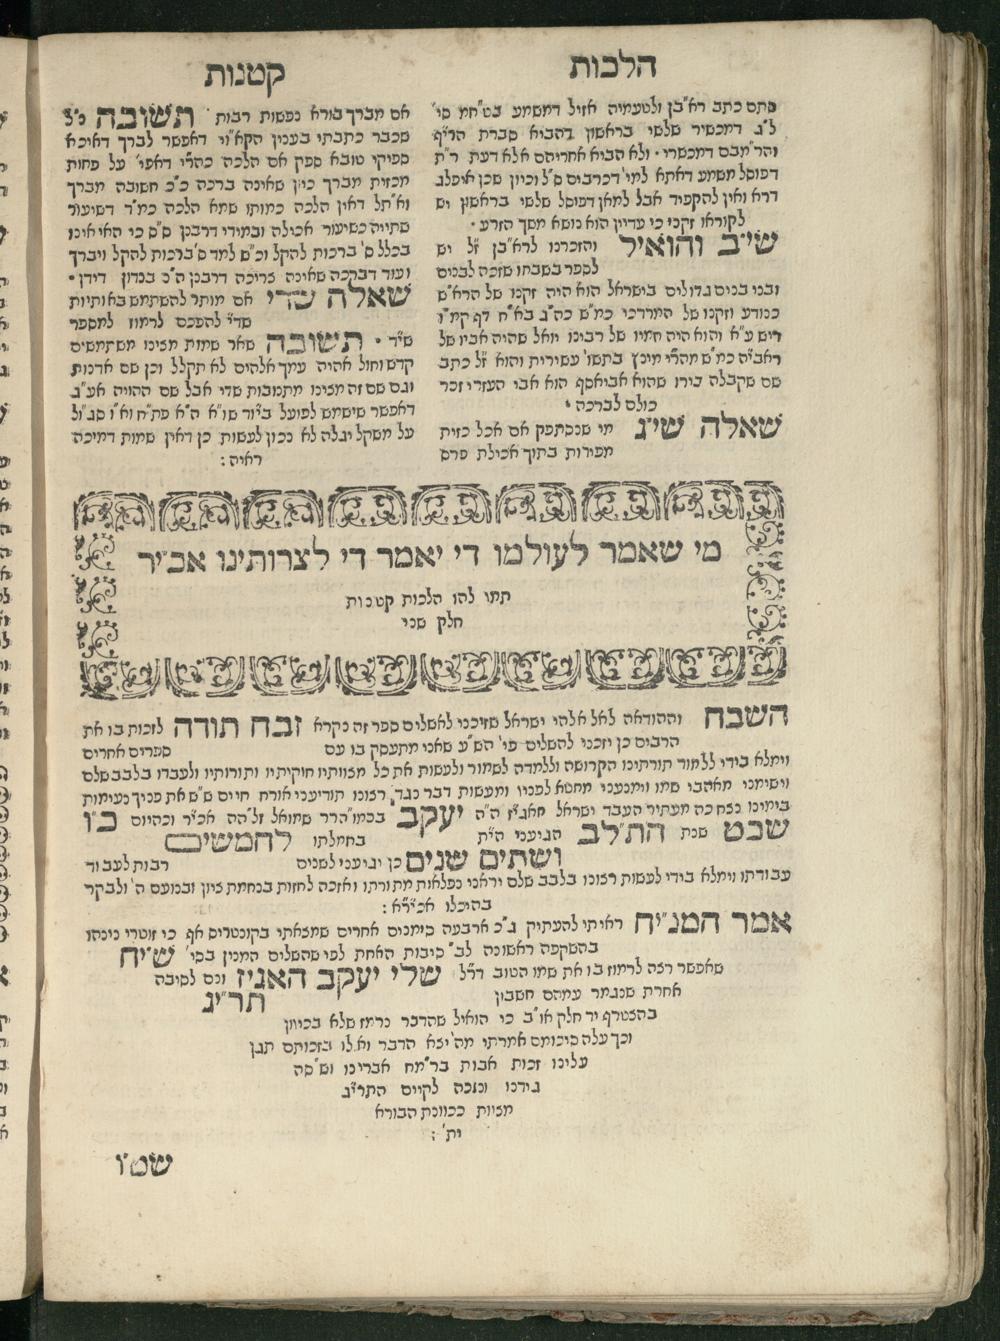 הלכות קטנות
סתם כתב רא"בן ולטעמיה אזיל דמשמע
ל"ג דמכשיר שלשי בראשון והביא סברת הרי"ף
והר"מבם דמכשרי · ולא הביא אחריהם אלא דעת ר"ת
דפוסל משמע דאתא למי' דכרבים ס"ל וכיון שכן
דרא ואין להקפיד אבל למאן דפוסל שלשי בראשון יש
לקוראו זקני כי עדיין הוא נושא משך הזרע ·
שי"ב והואיל והזכרנו לרא"בן ז"ל יש
לספר בשבחו שזכה לבנים
ובני בנים גדולים בישראל הוא היה זקנו של הרא"ש
כנודע וזקנו של המרדכי כמ"ש כה"ג בא"ח דף קמ"ו
ריש ע"א והוא היה חמיו של רבינו יואל שהיה אביו של
ראבי"ה כמ"ש מהר"י מינץ בתשו' עשירית והוא ז"ל כתב
שם שקבלה בידו שהוא אביאסף הוא אבי העזרי זכר
כולם לברכה ·
שאלה שי"ג מי שנסתפק אם אכל כזית
מפירות בתוך אכילת פרס
אם מברך בורא נפשות רבות · תשובה נ"ל
שכבר כתבתי בענין הקא"וי דאפשר לברך דאיכא
ספיקי טובא ספק אם הלכה כהר"י דאפי' על פחות
מכזית מברך כיון שאינה ברכה כ"כ חשובה מברך
וא"תל דאין הלכה כמותו שמא הלכה כמ"ד דשיעור
שתייה כשיעור אכילה ובמידי דרבנן ס"ס כי האי אינו
בכלל ס' ברכות להקל וכ"ש למד ס' ברכות להקל ויברך
ועוד דברכה שאינה צריכה דרבנן ה"נ בנדון דידן ·
שאלה שדי אם מותר להשתמש באותיות
שד"י להפכם לרמוז למספר
שי"ד · תשובה שאר שמות מצינו משתמשים
קדש וחול אהיה עמך אלהים לא תקלל וכן שם אדנות
וגם שם זה מצינו מתנובות שדי אבל שם ההויה אע"ג
דאפשר שישמש לפועל בי"וד שו"א ה"א פת"ח וא"ו סג"ול
על משקל יגלה לא נכון לעשות כן דאין שמות דמיכה
ראיה :
מי שאמר לעולמו די יאמר די לצרותינו אכי"ר
תמו להו הלכות קטנות
חלק שני
השבח וההודאה לאל אלהי ישראל שזיכני לאשלים ספר זה נקרא זבח תודה לזכות בו את
הרבים כן יזכני להשלים פי' הש"ע שאני מתעסק בו עם ספרים אחרים
וימלא בידי ללמוד תורתינו הקדושה וללמדה לשמור ולעשות את כל מצוותיו חוקיתיו ותורותיו ולעבדו בלבב שלם
וישימני מאהבי שמו וימנעני מחטא לפניו ומעשות דבר נגד רצונו תודיעני אורח חיים ש"ש את פניך נעימות
בימינו נצח כה מעתיר העבד ישראל חאגי"ז ה"ה יעקב בכמו"הרר שמואל זל"הה אכי"ר וכהיום כ"ו
שבט שנת הת"לב הגיעני הי"ת בחמלתו לחמשים
ושתים שנים כן יגיעני לשנים רבות לעבוד
עבודתו וימלא בידי לעשות רצונו בלבב שלם יראני נפלאות מתורתו ואזכה לחזות בנחמת ציון ובנועם ה' ולבקר
בהיכלו אכי"רא :
אמר המני"ח ראיתי להעתיק ג"כ ארבעה סימנים אחרים שמצאתי בקונטריס אף כי זוטרי נינהו
בהשקפה ראשונה לב' סיבות האחת לפי שהשלים המנין בסי' שי"ח
שאפשר רצה לרמוז בו את שמו הטוב דר"ל שלי יעקב האגיז וגם לסיבה
אחרת שנגמר עמהם חשבון תרי"ג
בהצטרף יד חלק או"ב כי הואיל שהדבר נרמז שלא בכיוון
וכך עלה סיכומם אמרתי מה' יצא הדבר ואלו בזכותם תגן
עלינו זכות אבות בר"מח אברינו וש"סה
גידנו ונזכה לקיים התרי"ג
מצוות ככוונת הבורא
ית' :
שט"ו